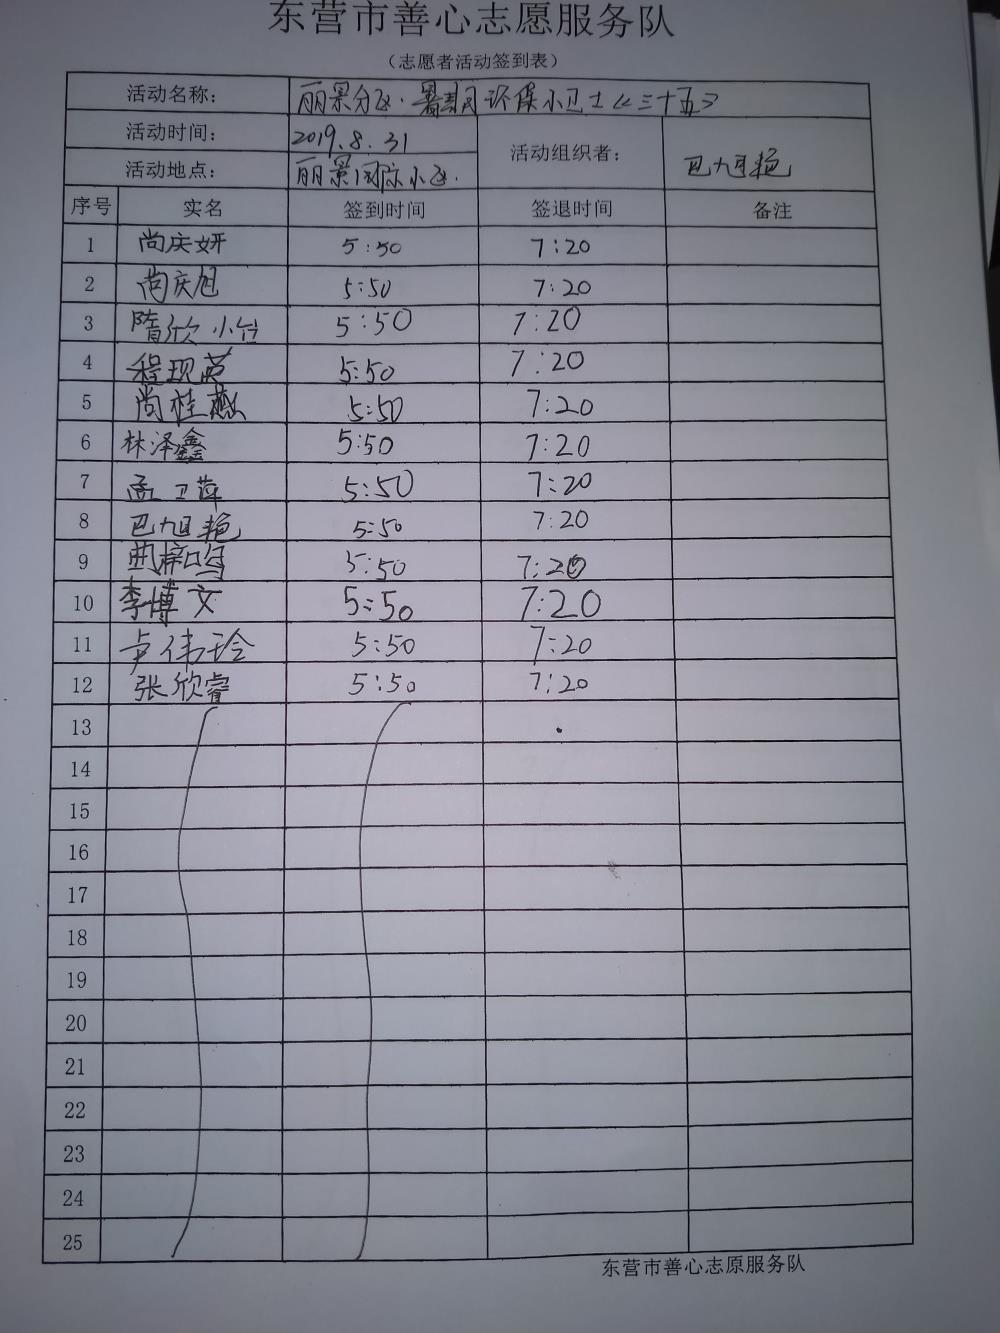 东营市善心志愿服务队
(志愿者活动签到表)
活动名称: 丽景分区·暑期环保小卫士<三十五>
活动时间: 2019.8.31 活动组织者: 巴旭艳
活动地点: 丽景国际小区.
序号 实名 签到时间 签退时间 备注
1 尚庆妍 5:50 7:20
2 尚庆旭 5:50 7:20
3 隋欣 5:50 7:20
4 程现英 5:50 7:20
5 尚桂燕 5:50 7:20
6 林泽鑫 5:50 7:20
7 孟卫萍 5:50 7:20
8 巴旭艳 5:50 7:20
9 5:50 7:20
10 李博文 5:50 7:20
11 卢伟玲 5:50 7:20
12 张欣睿 5:50 7:20
13
14
15
16
17
18
19
20
21
22
23
24
25
东营市善心志原服务队